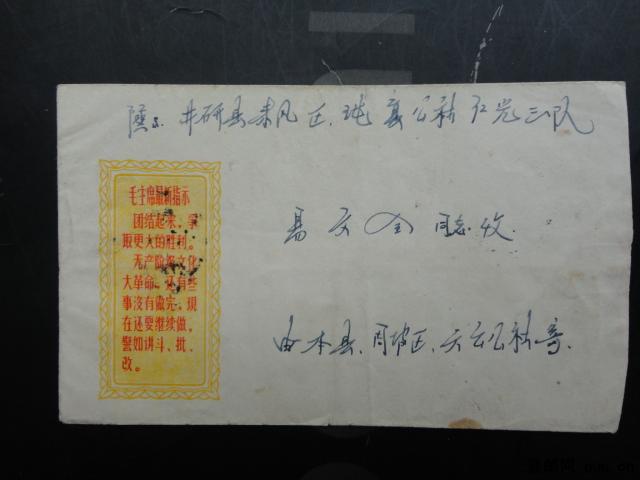 井研县来凤区 公社红岩三队
毛主席最新指示
团结起来，争
取更大的胜利。
无产阶级文化
大革命，还有些
事没有做完，现
在还要继续做，
譬如讲斗、批、
改。
同志收
由本县 周坡区 公社寄